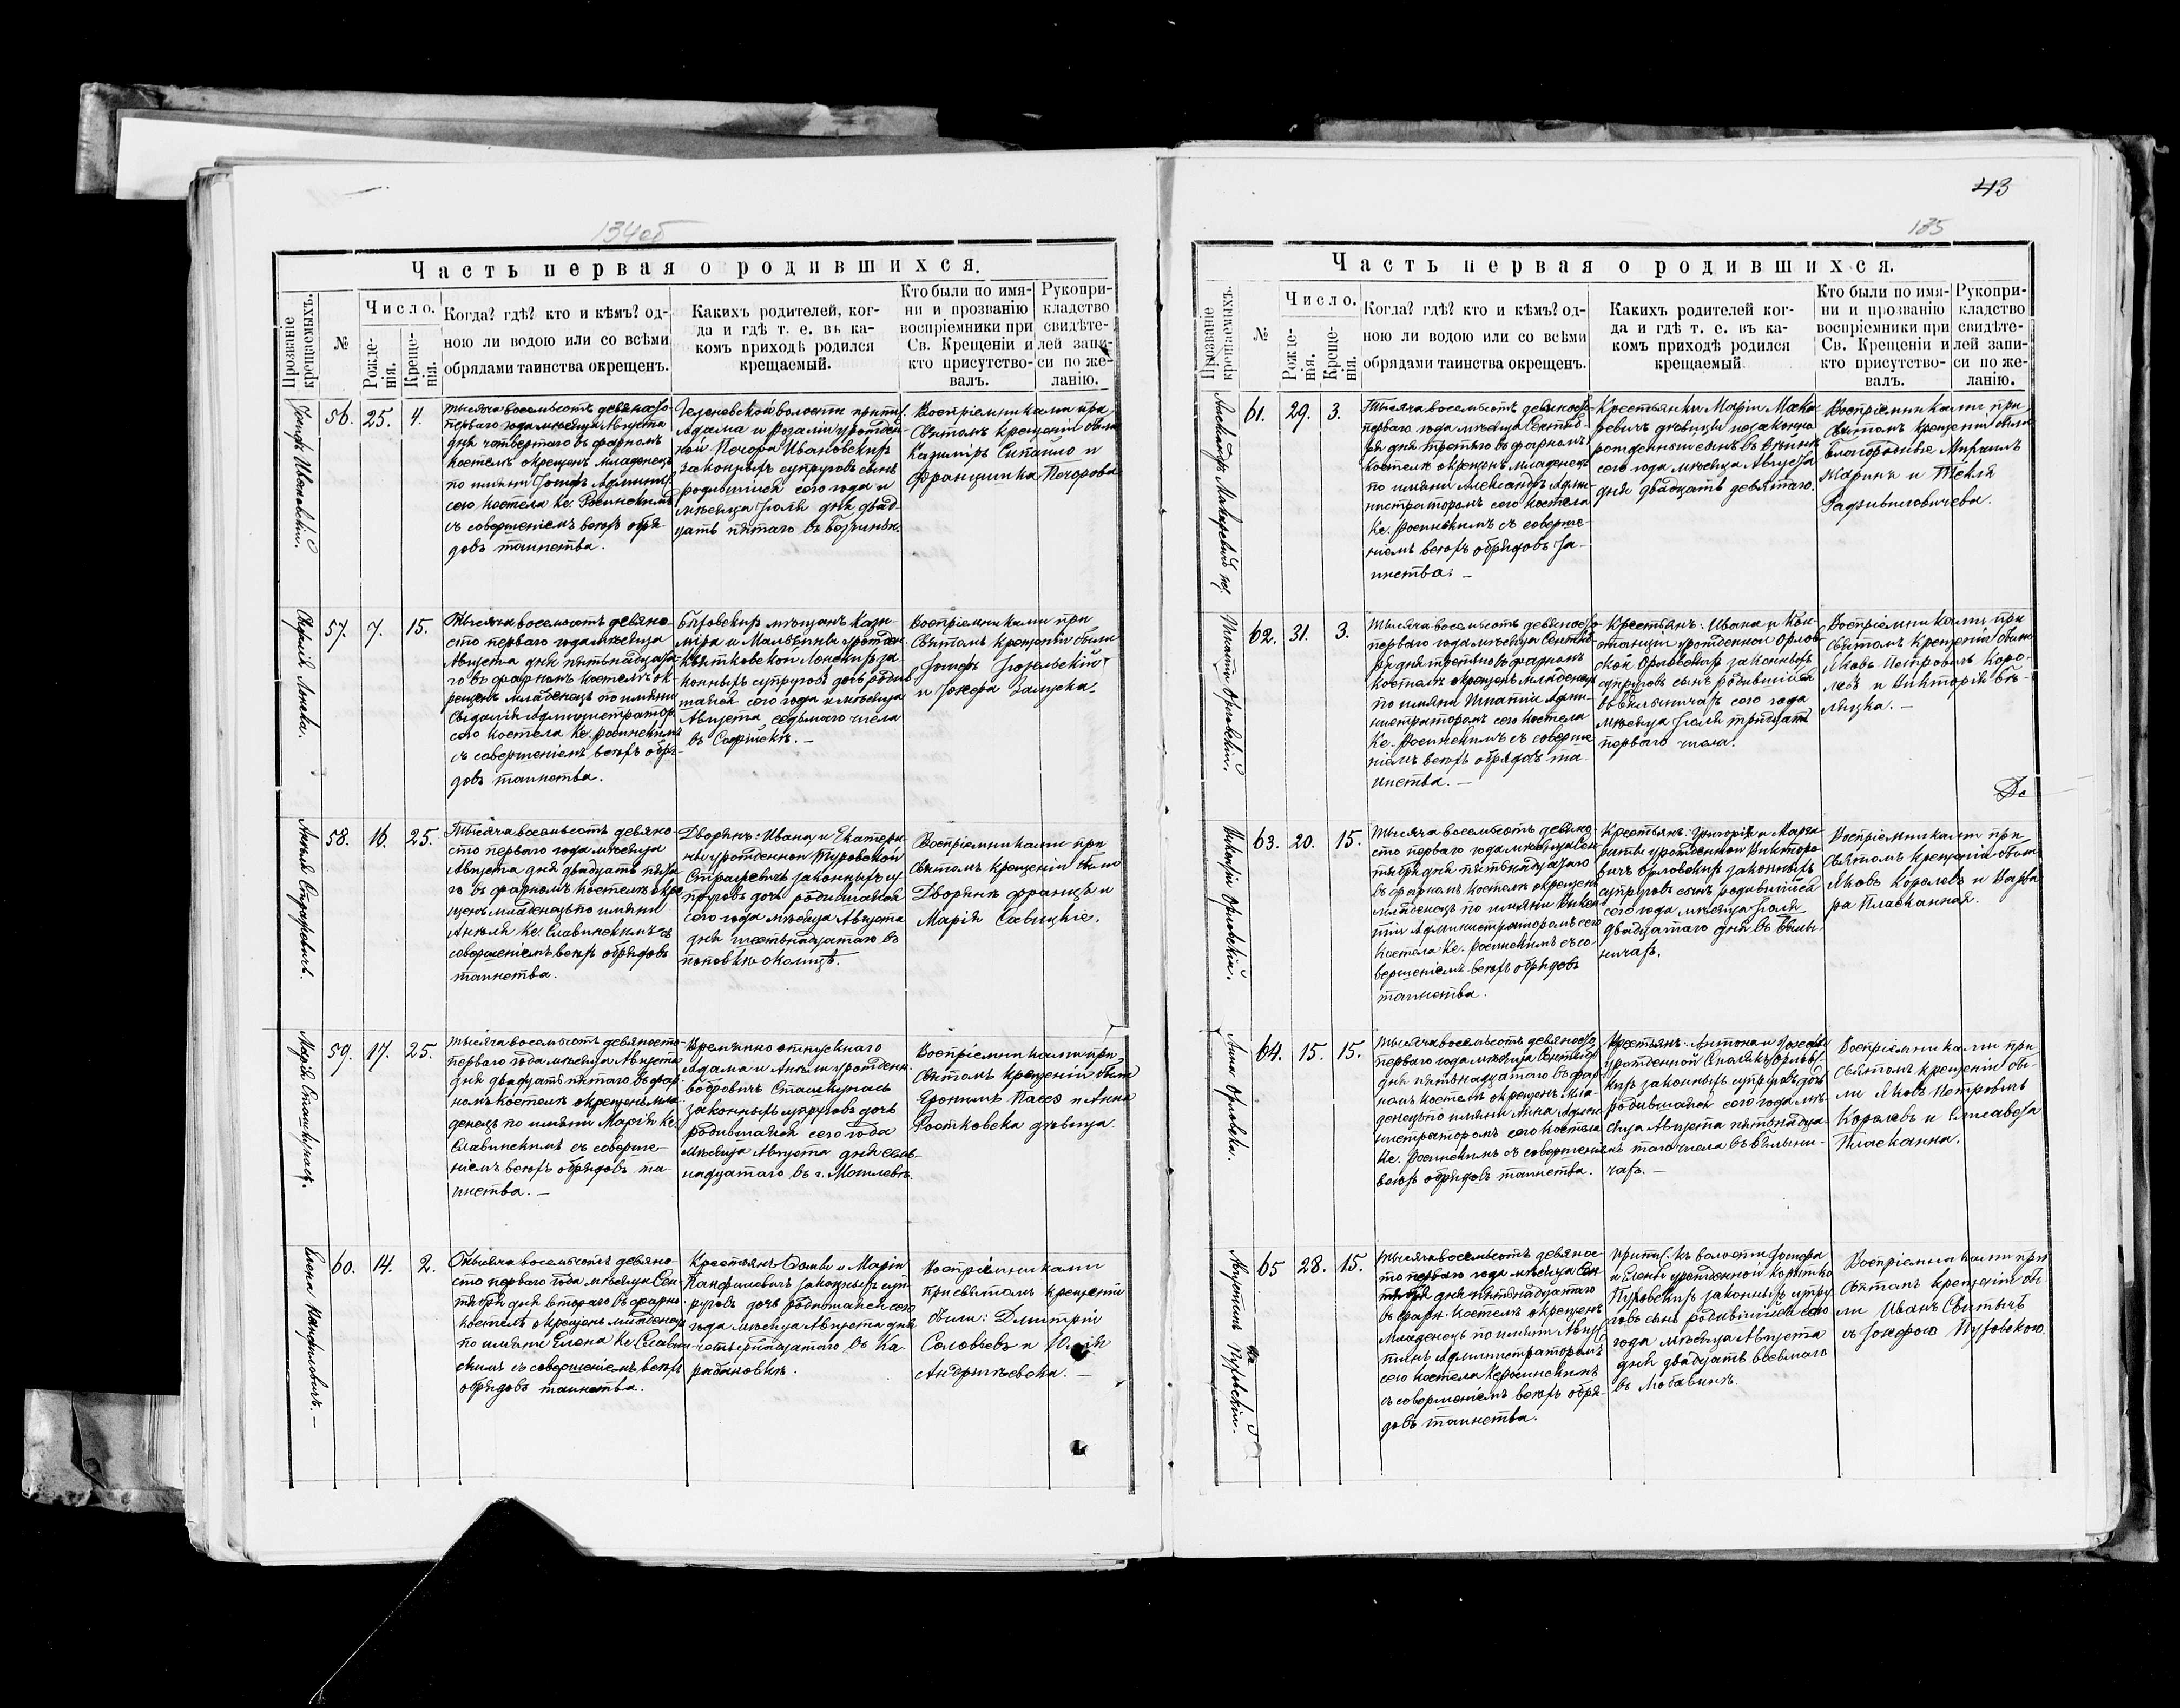 134об
Часть первая о родившихся.
Прозваніе крещаемыхъ.
№
Число.
Рожденія.
Крещенія.
Когда? гдѣ? кто и кѣмъ? од-
ною ли водою или со всѣми
обрядами таинства окрещенъ.
Какихъ родителей, ког-
да и гдѣ т. е. въ ка-
комъ приходѣ родился
крещаемый.
Кто были по имя-
ни и прозванію
воспріемники при
Св. Крещеніи и
кто присутство-
валъ.
Рукопри-
кладство
свидѣте-
лей запи-
си по же-
ланію.
Іосифъ Ивановскій.
56.
25.
4.
Тысяча восемьсотъ девяносто
перваго года мѣсяца Августа
дня четвертаго въ фарномъ
костелѣ окрещенъ младенецъ
по имяни Іосифъ
сего костела Кс. Росинскимъ
съ совершеніемъ всѣхъ обря-
довъ таинства.
волости
Адама и Розаліи урожден-
ной Печора Ивановскихъ
законныхъ супруговъ сынъ
родившійся сего года и
мѣсяца Іюля дня двад-
цать пятаго въ
Воспріемниками при
Святомъ Крещеніи были
Казиміръ и
Францишка Печорова
57.
7.
15.
Тысяча восемьсотъ девяно-
сто перваго года мѣсяца
Августа дня пятьнадцата-
го въ фарномъ костелѣ ок-
рещенъ младенецъ по имяни
Администратор.
сего костела Кс. Росинскимъ
съ совершеніемъ всѣхъ обря-
довъ таинства.
мѣщанъ Кази-
міра и Мальвины урожден.
Квятковской за-
конныхъ супруговъ дочь родив-
шаяся сего года и мѣсяца
Августа седьмаго числа
въ Софійскѣ. —
Воспріемниками при
Святомъ Крещеніи были
Іосифъ
и Іозефа
Анеля Страшевичъ.
58.
16.
25.
Тысяча восемьсотъ девяно-
сто перваго года мѣсяца
Августа дня двадцать пята-
го въ фарномъ костелѣ окре-
щенъ младенецъ по имяни
Анеля Кс. Славинскимъ съ
совершеніемъ всѣхъ обрядовъ
таинства.
Дворянъ: Ивана и Екатери-
ны урожденной Туровской
Страшевичъ законныхъ су-
пруговъ дочь родившаяся
сего года мѣсяца Августа
дня шестьнадцатаго въ
околицѣ.
Воспріемниками при
Святомъ Крещеніи были
Дворяне Францъ и
Марія Савицкіе.
59.
17.
25.
Тысяча восемьсотъ девяносто
перваго года мѣсяца Августа
дня двадцать пятаго въ фар-
номъ костелѣ окрещенъ мла-
денецъ по имяни Марія Кс.
Славинскимъ съ соверше-
ніемъ всѣхъ обрядовъ та-
инства. —
Временно отпускнаго
Адама и Анели урожден.
Бобровичъ
законныхъ супруговъ дочь
родившаяся сего года
мѣсяца Августа дня семь-
надцатаго въ г. Могилевѣ.
Воспріемниками при
Святомъ Крещеніи были
и Анна
дѣвица.
60.
14.
2.
Тысяча восемьсотъ девяно-
сто перваго года мѣсяца Сен-
тября дня втораго въ фарно.
костелѣ окрещенъ младенецъ
по имяни Елена Кс Славин-
скимъ съ совершеніемъ всѣхъ
обрядовъ таинства.
Крестьянъ и Маріи
Панфиловичъ законныхъ суп-
руговъ дочь родившаяся сего
года мѣсяца Августа дня
четырнадцатаго въ Ка-
рабановкѣ.
Воспріемниками
при Святомъ Крещеніи
были: Дмитрій
Соловьевъ и

43
135
Часть первая о родившихся.
Прозваніе крещаемыхъ.
№
Число.
Рожденія.
Крещенія.
Когда? гдѣ? кто и кѣмъ? од-
ною ли водою или со всѣми
обрядами таинства окрещенъ.
Какихъ родителей ког-
да и гдѣ т. е. въ ка-
комъ приходѣ родился
крещаемый.
Кто были по имя-
ни и прозванію
воспріемники при
Св. Крещеніи и
кто присутство-
валъ.
Рукопри-
кладство
свидѣте-
лей запи-
си по же-
ланію.
Александръ Макаревичъ
61.
29.
3.
Тысяча восемьсотъ девяносто
перваго года мѣсяца Сентяб-
ря дня третьяго въ фарномъ
костелѣ окрещенъ младенецъ
по имяни Александръ Адми-
нистраторомъ сего костела
Кс. Росинскимъ съ соверше-
ніемъ всѣхъ обрядовъ та-
инства. —
Крестьянки Маріи Мака-
ревичъ дѣвицы незаконно
рожденный сынъ въ
сего года мѣсяца Августа
дня двадцать девятаго.
Воспріемниками при
Святомъ Крещеніи были
Благородные Михаилъ
и Текля
Игнатій Орловскій.
62.
31.
3.
Тысяча восемьсотъ девяносто
перваго года мѣсяца Сентяб-
ря дня третьяго въ фарномъ
костелѣ окрещенъ младенецъ
по имяни Игнатій Адми-
нистраторомъ сего костела
Кс. Росинскимъ съ соверше-
ніемъ всѣхъ обрядовъ та-
инства. —
Крестьянъ: Ивана и Кон-
станціи урожденной Орлов-
ской Орловскихъ законныхъ
супруговъ сынъ родившійся
въ Бѣлыничахъ сего года
мѣсяца Іюля тридцать
перваго числа.
Воспріемниками при
Святомъ Крещеніи были
Яковъ Петровичъ Коро-
левъ и Викторія
Викентій Орловскій.
63.
20.
15.
Тысяча восемьсотъ девяно-
сто перваго года мѣсяца Сен-
тября дня пятьнадцатаго
въ фарномъ костелѣ окрещенъ
младенецъ по имяни Викен-
тій Администраторомъ сего
костела Кс. Росинскимъ съ со-
вершеніемъ всѣхъ обрядовъ
таинства.
Крестьянъ: Григорія и Марга-
риты урожденной Викторо-
вичъ Орловскихъ законныхъ
супруговъ сынъ родившійся
сего года мѣсяца Іюля
двадцатаго дня въ Бѣлы-
ничахъ.
Воспріемниками при
Святомъ Крещеніи были
Яковъ Королевъ и Варва-
ра
Анна Орловска.
64.
15.
15.
Тысяча восемьсотъ девяносто
перваго года мѣсяца Сентября
дня пятьнадцатаго въ фар-
номъ костелѣ окрещенъ мла-
денецъ по имяни Анна Адми-
нистраторомъ сего костела
Кс. Росинскимъ съ совершеніемъ
всѣхъ обрядовъ таинства.
Крестьянъ: Антона и Іозефы
урожденной
законныхъ супруговъ дочь
родившаяся сего года мѣ-
сяца Августа пятьнадца-
таго числа въ Бѣлыни-
чахъ. —
Воспріемниками при
Святомъ Крещеніи бы-
ли Яковъ Петровичъ
Королевъ и Елисавета
65
28.
15.
Тысяча восемьсотъ девянос-
то перваго года мѣсяца Сен-
тября дня пятьнадцатаго
въ фарн. костелѣ окрещенъ
младенецъ по имяни Авгус-
тинъ Администраторомъ
сего костела Кс Росинскимъ
съ совершеніемъ всѣхъ обря-
довъ таинства.
къ волости Іосифа
и Елены урожденной
законныхъ супру-
говъ сынъ родившійся сего
года мѣсяца Августа
дня двадцать восьмаго
въ
Воспріемниками при
Святомъ Крещеніи бы-
ли Иванъ
съ Іозефою